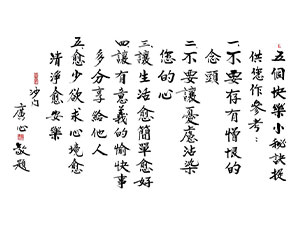 五個快樂小秘訣提
供您作參考：
一不要存有憎恨的
念頭
二不要讓憂慮沾染
您的心
三讓生活愈簡單愈好
四讓有意義的愉快事
多分享給他人
五愈少欲求心境愈
清淨愈安樂
沙門
廣心敬題